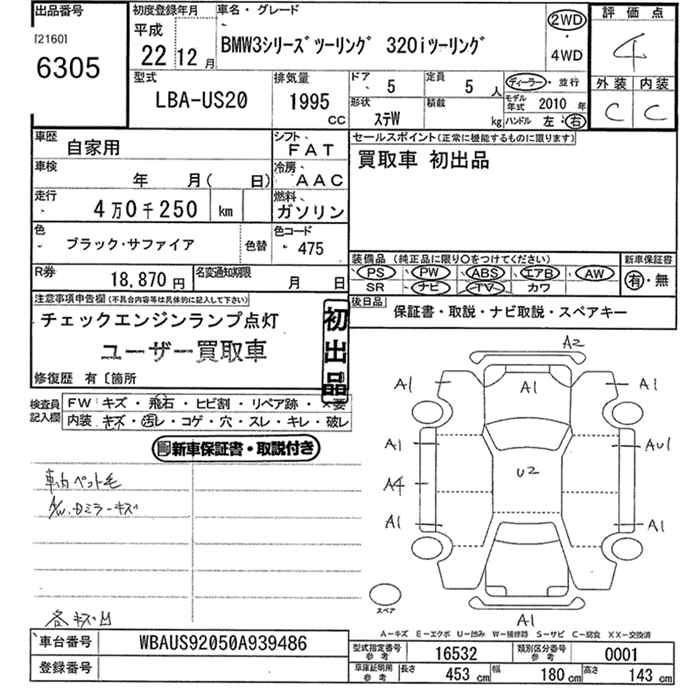 出品番号
[2160]
6305
初度登録年月
平成
22 12 月
車名・グレード
BMW3シリーズツーリング 320iツーリング
2WD
・
4WD
評価点
4
外装 内装
C C
型式
LBA-US20
排気量
1995
CC
ドア
5
定員
5 人
形状
ステW
積載
kg
ディーラー・並行
モデル年式 2010 年
ハンドル 左・右
車歴
自家用
シフト
FAT
車検
年 月( 日)
冷房
AAC
走行
4万0千250 km
燃料
ガソリン
色
ブラック・サファイア
色替
色コード
475
R券
18,870 円
名変通知期限
月 日
セールスポイント(正常に機能するものに限ります)
買取車 初出品
装備品 (純正品に限り〇をつけてください)
PS PW ABS エアB AW
SR ナビ TV カワ
新車保証書
有・無
後日品
保証書・取説・ナビ取説・スペアキー
注意事項申告欄(不具合内容等は具体的に記入して下さい)
チェックエンジンランプ点灯
ユーザー買取車
初出品
修復歴 有〔箇所
検査員記入欄
FW キズ・飛石・ヒビ割・リペア跡・×要
内装 キズ・汚レ・コゲ・穴・スレ・キレ・破レ
新車保証書・取説付き
車内ペット毛
A/W.ロミラーキズ
各キズ凹
A2
A1 A1 A1
A1 AU1
U2
A4
A1 A1
A1
スペア
A-キズ E-エクボ U-凹み W-補修跡 S-サビ C-腐食 XX-交換済
車台番号
WBAUS92050A939486
登録番号
型式指定番号 参考 16532
類別区分番号 参考 0001
車庫証明用 参考
長さ 453 cm 幅 180 cm 高さ 143 cm